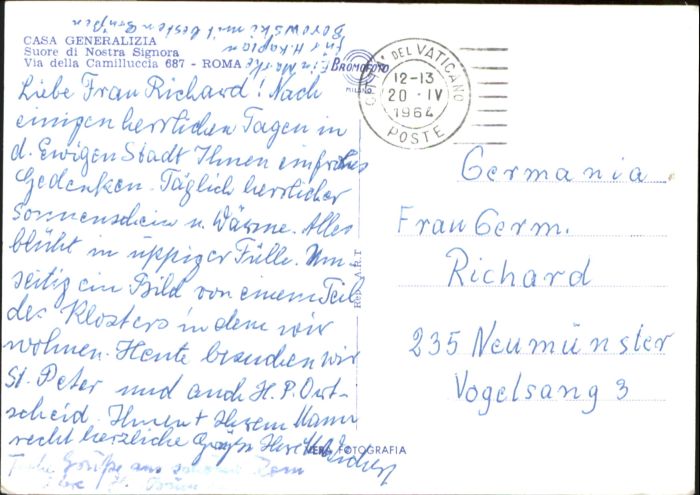 Borowski mit besten Grüßen
für H. Kaplan
Ein Marke
CASA GENERALIZIA
Suore di Nostra Signora
Via della Camilluccia 687 - ROMA
BROMOFOTO
MILANO
CITTA' DEL VATICANO
12-13
20 · IV
1964
POSTE
Liebe Frau Richard! Nach
einigen herrlichen Tagen in
d. Ewigen Stadt Ihnen ein frohes
Gedenken. Täglich herrlicher
Sonnenschein u. Wärme. Alles
blüht in üppiger Fülle. Um-
seitig ein Bild von einem Teil
des Klosters in dem wir
wohnen. Heute besuchen wir
St. Peter und auch H. P. Ort-
scheid. Ihnen + Ihrem Mann
recht herzliche Grüße Ihre
Grüße aus Rom
Ihre
VERA FOTOGRAFIA
Germania
Frau Germ.
Richard
235 Neumünster
Vogelsang 3